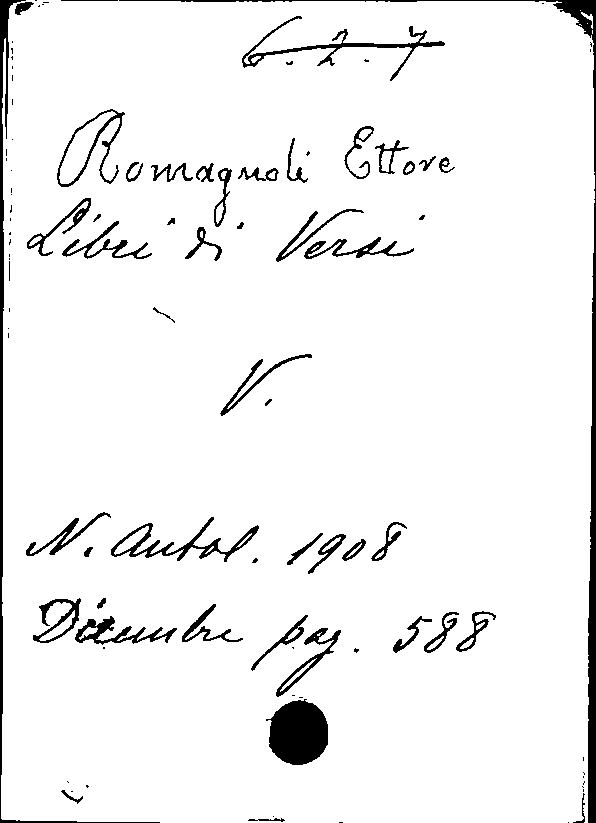 6.2.7
Romagnoli Ettore
Libri di Versi
V.
N. Antol. 1908
Dicembre pag. 588